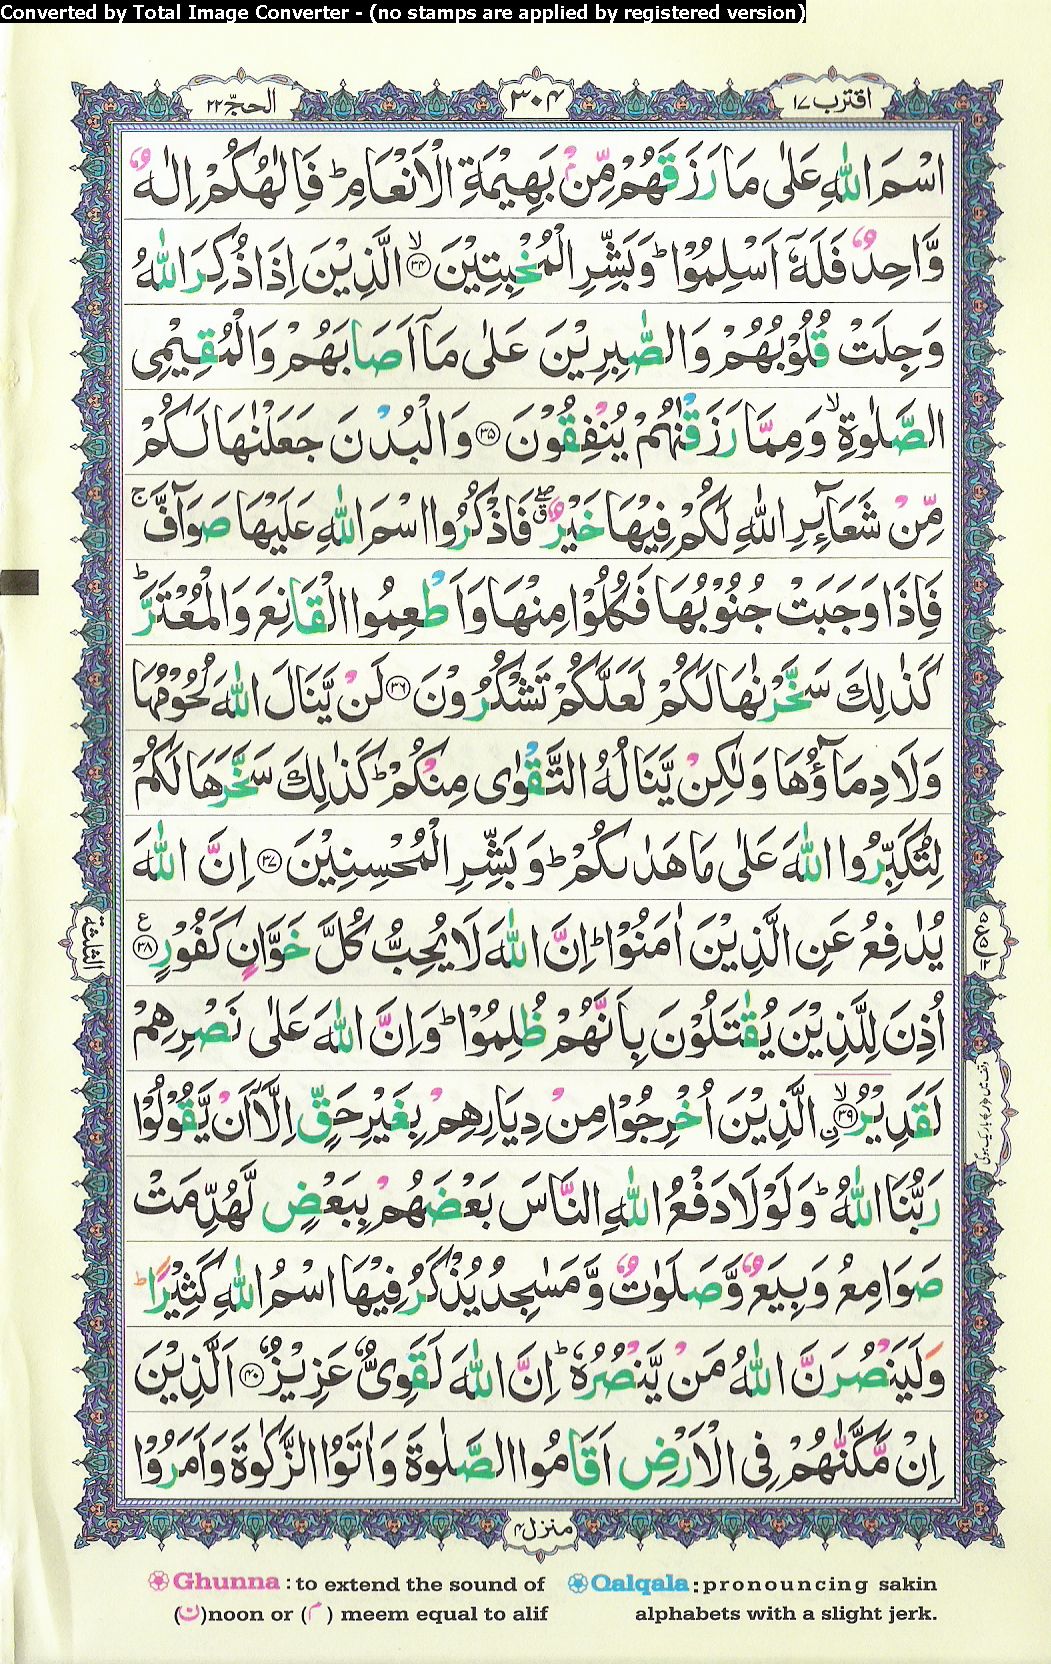 Converted by Total Image Converter - (no stamps are applied by registered version)
اقترب ١٧
٣٠۴
الحجّ ٢٢
اسْمَ اللّٰهِ عَلٰى مَا رَزَقَهُمْ مِّنْۢ بَهِيْمَةِ الْاَنْعَامِ ؕ فَاِلٰهُكُمْ اِلٰهٌ
وَّاحِدٌ فَلَهٗۤ اَسْلِمُوْا ؕ وَبَشِّرِ الْمُخْبِتِيْنَ ۙ﴿۳۴﴾ الَّذِيْنَ اِذَا ذُكِرَ اللّٰهُ
وَجِلَتْ قُلُوْبُهُمْ وَالصّٰبِرِيْنَ عَلٰى مَاۤ اَصَابَهُمْ وَالْمُقِيْمِى
الصَّلٰوةِ ۙ وَمِمَّا رَزَقْنٰهُمْ يُنْفِقُوْنَ ﴿۳۵﴾ وَالْبُدْنَ جَعَلْنٰهَا لَكُمْ
مِّنْ شَعَآئِرِ اللّٰهِ لَكُمْ فِيْهَا خَيْرٌ ۖ ق فَاذْكُرُوا اسْمَ اللّٰهِ عَلَيْهَا صَوَآفَّ ۚ
فَاِذَا وَجَبَتْ جُنُوْبُهَا فَكُلُوْا مِنْهَا وَاَطْعِمُوا الْقَانِعَ وَالْمُعْتَرَّ ؕ
كَذٰلِكَ سَخَّرْنٰهَا لَكُمْ لَعَلَّكُمْ تَشْكُرُوْنَ ﴿۳۶﴾ لَنْ يَّنَالَ اللّٰهَ لُحُوْمُهَا
وَلَا دِمَآؤُهَا وَلٰكِنْ يَّنَالُهُ التَّقْوٰى مِنْكُمْ ؕ كَذٰلِكَ سَخَّرَهَا لَكُمْ
لِتُكَبِّرُوا اللّٰهَ عَلٰى مَا هَدٰىكُمْ ؕ وَبَشِّرِ الْمُحْسِنِيْنَ ﴿۳۷﴾ اِنَّ اللّٰهَ
يُدٰفِعُ عَنِ الَّذِيْنَ اٰمَنُوْا ؕ اِنَّ اللّٰهَ لَا يُحِبُّ كُلَّ خَوَّانٍ كَفُوْرٍ ﴿۳۸﴾ ع
الثلٰثة
اُذِنَ لِلَّذِيْنَ يُقٰتَلُوْنَ بِاَنَّهُمْ ظُلِمُوْا ؕ وَاِنَّ اللّٰهَ عَلٰى نَصْرِهِمْ
لَقَدِيْرُ ۙ﴿۳۹﴾ ۨ الَّذِيْنَ اُخْرِجُوْا مِنْ دِيَارِهِمْ بِغَيْرِ حَقٍّ اِلَّاۤ اَنْ يَّقُوْلُوْا
رَبُّنَا اللّٰهُ ؕ وَلَوْلَا دَفْعُ اللّٰهِ النَّاسَ بَعْضَهُمْ بِبَعْضٍ لَّهُدِّمَتْ
صَوَامِعُ وَبِيَعٌ وَّصَلَوٰتٌ وَّمَسٰجِدُ يُذْكَرُ فِيْهَا اسْمُ اللّٰهِ كَثِيْرًا ؕ
وَلَيَنْصُرَنَّ اللّٰهُ مَنْ يَّنْصُرُهٗ ؕ اِنَّ اللّٰهَ لَقَوِىٌّ عَزِيْزٌ ﴿۴۰﴾ اَلَّذِيْنَ
اِنْ مَّكَّنّٰهُمْ فِى الْاَرْضِ اَقَامُوا الصَّلٰوةَ وَاٰتَوُا الزَّكٰوةَ وَاَمَرُوْا
منزل ۴
Ghunna : to extend the sound of
(ن)noon or (م) meem equal to alif
Qalqala : pronouncing sakin
alphabets with a slight jerk.